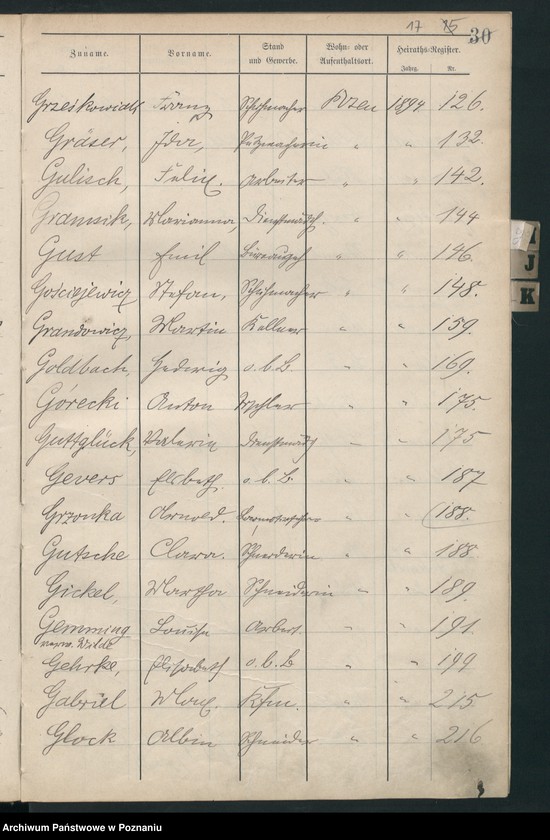 17 25 30
Zuname. Vorname. Stand und Gewerbe. Wohn- oder Aufenthaltsort. Heiraths-Register.
Jahrg. Nr.
Grześkowiak Franz Schuhmacher Posen 1894 126.
Gräser, Ida, Putzmacherin " " 132.
Gulisch, Felix. Arbeiter " " 142.
Marianna, Dienstmädch. " " 144
Gust Emil " " 146.
Gościejewicz Stefan, Schuhmacher " " 148.
Grandowicz, Martin Kellner " " 159.
Goldbach, Hedwig o. b. B " " 169.
Górecki Anton " " 175.
Guttglück, Valerie Dienstmädch " " 175
Gevers Elsbeth o. b. B. " " 187
Grzonka Arnold. " " 188.
Gutsche Clara. Schneiderin " " 188.
Gickel, Martha Schneiderin " " 189.
Gemming Louise Arbeit. " " 191.
verw. Wilde
Gehrke, Elisabeth o. b. B " " 199
Gabriel Max. Kfm. " " 215
Glock Albin Schneider " " 216
I
J
K
Archiwum Państwowe w Poznaniu